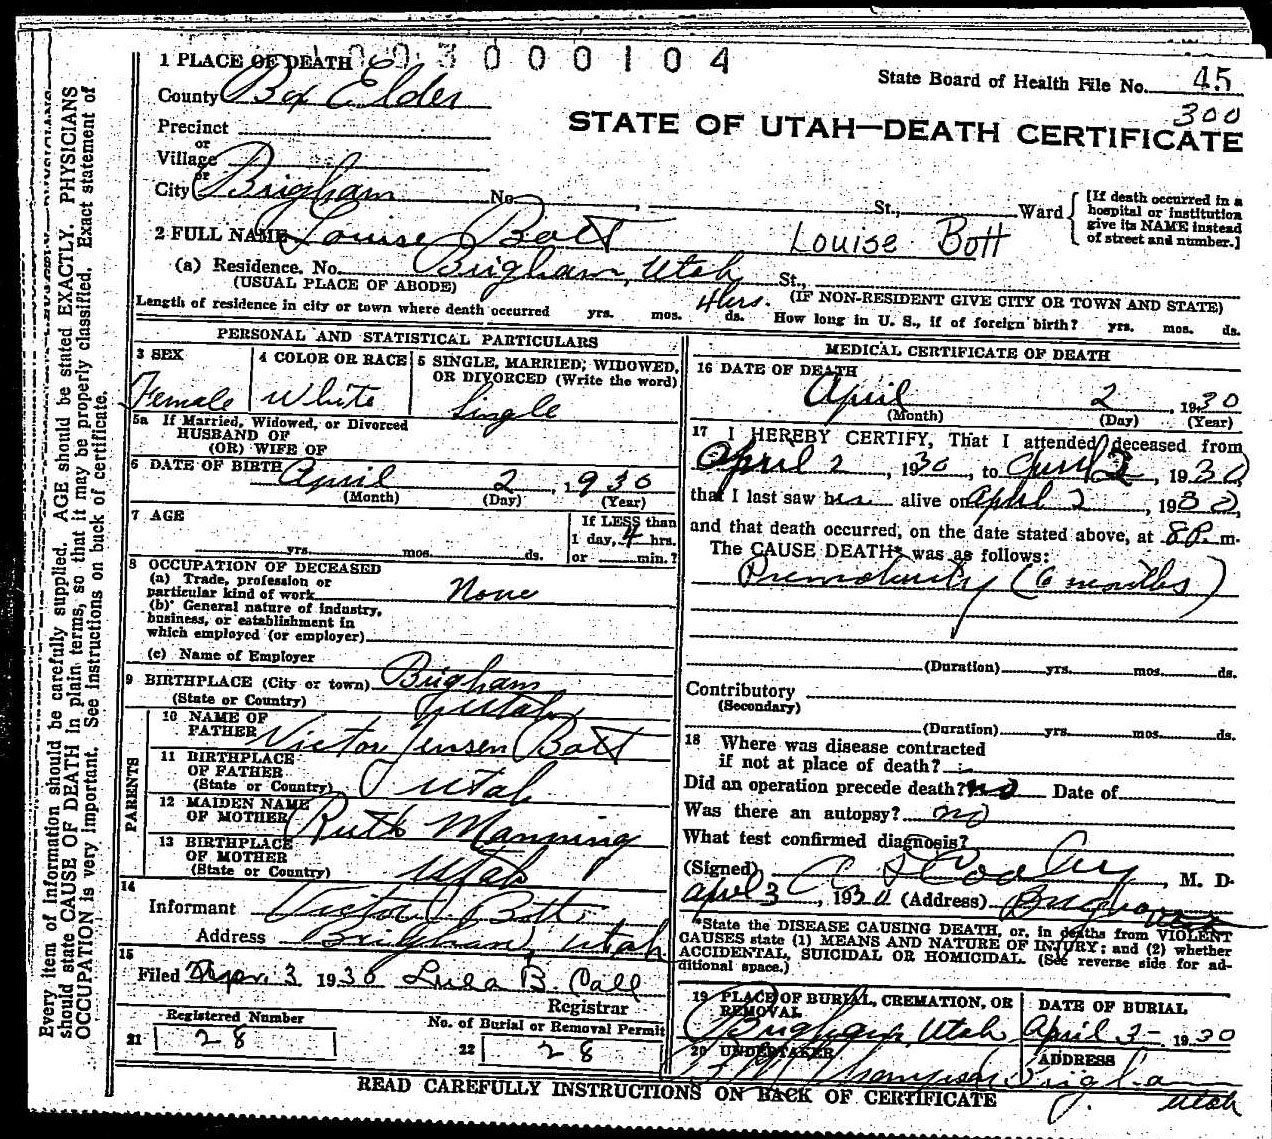 1 0 0 3 0 0 0 1 0 4
1 PLACE OF DEATH
State Board of Health File No. 45
300
County Box Elder
STATE OF UTAH—DEATH CERTIFICATE
Precinct
or
Village
or
City Brigham No. St., Ward
[If death occurred in a hospital or institution give its NAME instead of street and number.]
2 FULL NAME Louise Bott Louise Bott
(a) Residence. No. Brigham, Utah St.,
(USUAL PLACE OF ABODE) (IF NON-RESIDENT GIVE CITY OR TOWN AND STATE)
Length of residence in city or town where death occurred yrs. mos. 4 hrs. ds. How long in U. S., if of foreign birth? yrs. mos. ds.
PERSONAL AND STATISTICAL PARTICULARS
3 SEX
Female
4 COLOR OR RACE
White
5 SINGLE, MARRIED, WIDOWED,
OR DIVORCED (Write the word)
Single
5a If Married, Widowed, or Divorced
HUSBAND OF
(OR) WIFE OF
6 DATE OF BIRTH April 2, 1930
(Month) (Day) (Year)
7 AGE
yrs. mos. ds.
If LESS than
1 day, 4 hrs.
or min.?
8 OCCUPATION OF DECEASED
(a) Trade, profession or
particular kind of work None
(b) General nature of industry,
business, or establishment in
which employed (or employer)
(c) Name of Employer
9 BIRTHPLACE (City or town) Brigham
(State or Country) Utah
PARENTS
10 NAME OF
FATHER Victor Jensen Bott
11 BIRTHPLACE
OF FATHER
(State or Country) Utah
12 MAIDEN NAME
OF MOTHER Ruth Manning
13 BIRTHPLACE
OF MOTHER
(State or Country) Utah
14
Informant Victor J. Bott
Address Brigham, Utah
15
Filed Apr. 3 1930 Lula B. Call
Registrar
Registered Number
21 28
No. of Burial or Removal Permit
22 28
MEDICAL CERTIFICATE OF DEATH
16 DATE OF DEATH
April 2, 1930
(Month) (Day) (Year)
17 I HEREBY CERTIFY, That I attended deceased from
April 2, 1930, to April 2, 1930,
that I last saw her alive on April 2, 1930,
and that death occurred, on the date stated above, at 8 P. m.
The CAUSE DEATH* was as follows:
Prematurity (6 months)
(Duration) yrs. mos. ds.
Contributory
(Secondary)
(Duration) yrs. mos. ds.
18 Where was disease contracted
if not at place of death?
Did an operation precede death? no Date of
Was there an autopsy? no
What test confirmed diagnosis?
(Signed) A D Cooley, M. D.
April 3, 1930 (Address) Brigham
*State the DISEASE CAUSING DEATH, or, in deaths from VIOLENT
CAUSES state (1) MEANS AND NATURE OF INJURY; and (2) whether
ACCIDENTAL, SUICIDAL OR HOMICIDAL. (See reverse side for ad-
ditional space.)
19 PLACE OF BURIAL, CREMATION, OR
REMOVAL
Brigham, Utah
DATE OF BURIAL
April 3 1930
20 UNDERTAKER
Thompson
ADDRESS
Brigham
Utah
READ CAREFULLY INSTRUCTIONS ON BACK OF CERTIFICATE
Every item of information should be carefully supplied. AGE should be stated EXACTLY. PHYSICIANS
should state CAUSE OF DEATH in plain terms, so that it may be properly classified. Exact statement of
OCCUPATION is very important. See instructions on back of certificate.